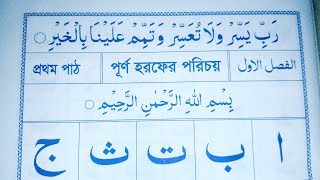 رَبِّ يَسِّرْ وَلَا تُعَسِّرْ وَتَمِّمْ عَلَيْنَا بِالْخَيْرِ ○
প্রথম পাঠ পূর্ণ হরফের পরিচয় الفصل الاول
بِسْمِ اللهِ الرَّحْمٰنِ الرَّحِيْمِ ○
ا ب ت ث ج